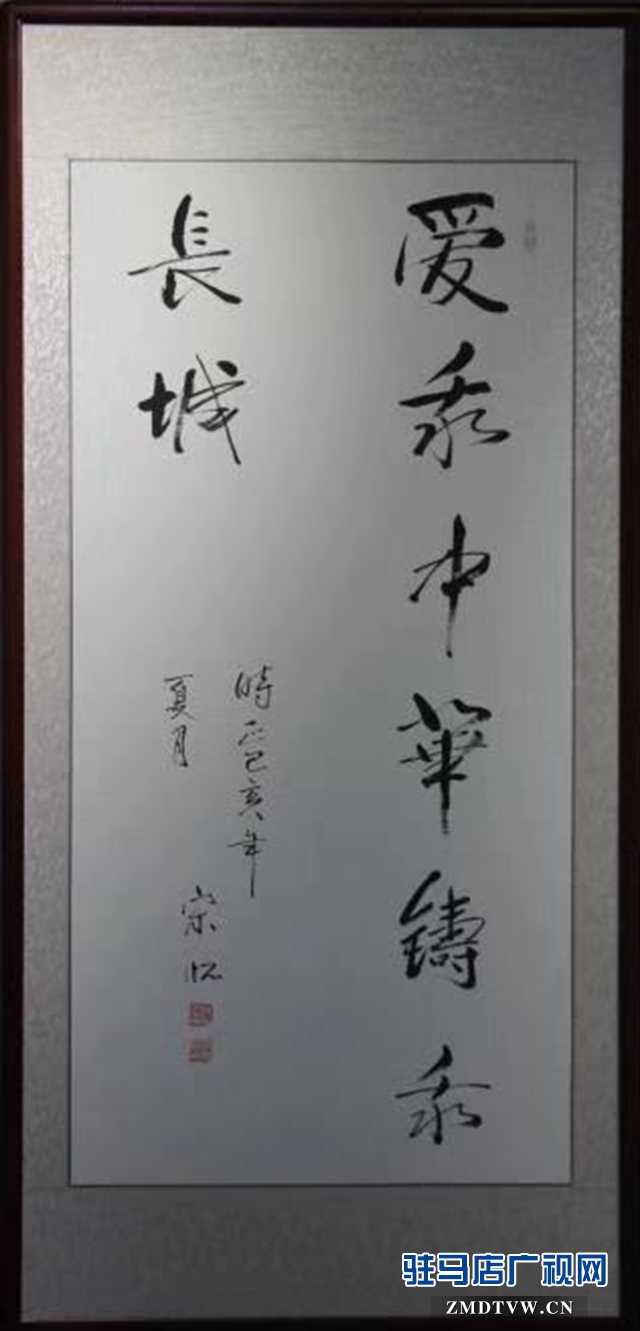 爱我中華鑄我
長城
時歲己亥年
夏月
宗
驻马店广视网
ZMDTVW.CN